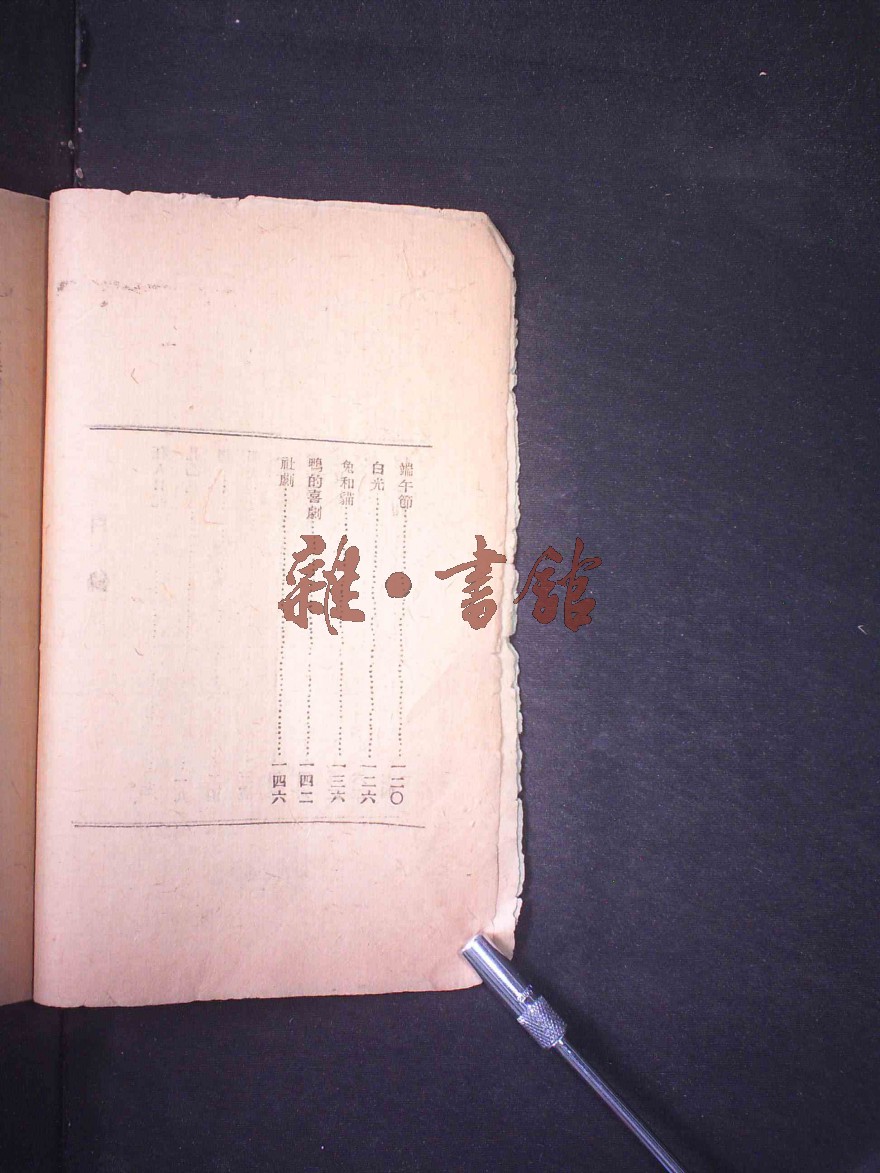 端午節……一二〇
白光……一二六
兔和貓……一三六
鴨的喜劇……一四二
社劇……一四六
雜·書館